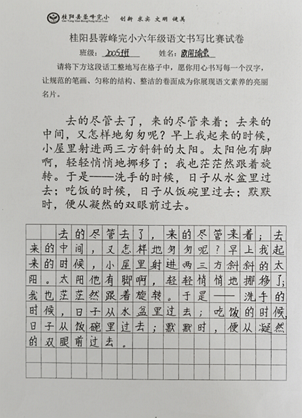 桂阳县蓉峰完小
创新 求实 文明 健美
桂阳县蓉峰完小六年级语文书写比赛试卷
班级:2005班 姓名:
请将下方这段话工整地写在格子中,愿你用心书写每一个汉字,
让规范的笔画、匀称的结构、整洁的卷面成为你展现语文素养的亮丽
名片。
去的尽管去了,来的尽管来着;去来的
中间,又怎样地匆匆呢?早上我起来的时候,
小屋里射进两三方斜斜的太阳。太阳他有脚
啊,轻轻悄悄地挪移了;我也茫茫然跟着旋
转。于是——洗手的时候,日子从水盆里过
去;吃饭的时候,日子从饭碗里过去;默默
时,便从凝然的双眼前过去。
去的尽管去了,来的尽管来着;去
来的中间,又怎样地匆匆呢?早上我起
来的时候,小屋里射进两三方斜斜的太
阳。太阳他有脚啊,轻轻悄悄地挪移了;
我也茫茫然跟着旋转。于是——洗手的
时候,日子从水盆里过去;吃饭的时候,
日子从饭碗里过去;默默时,便从凝然
的双眼前过去。